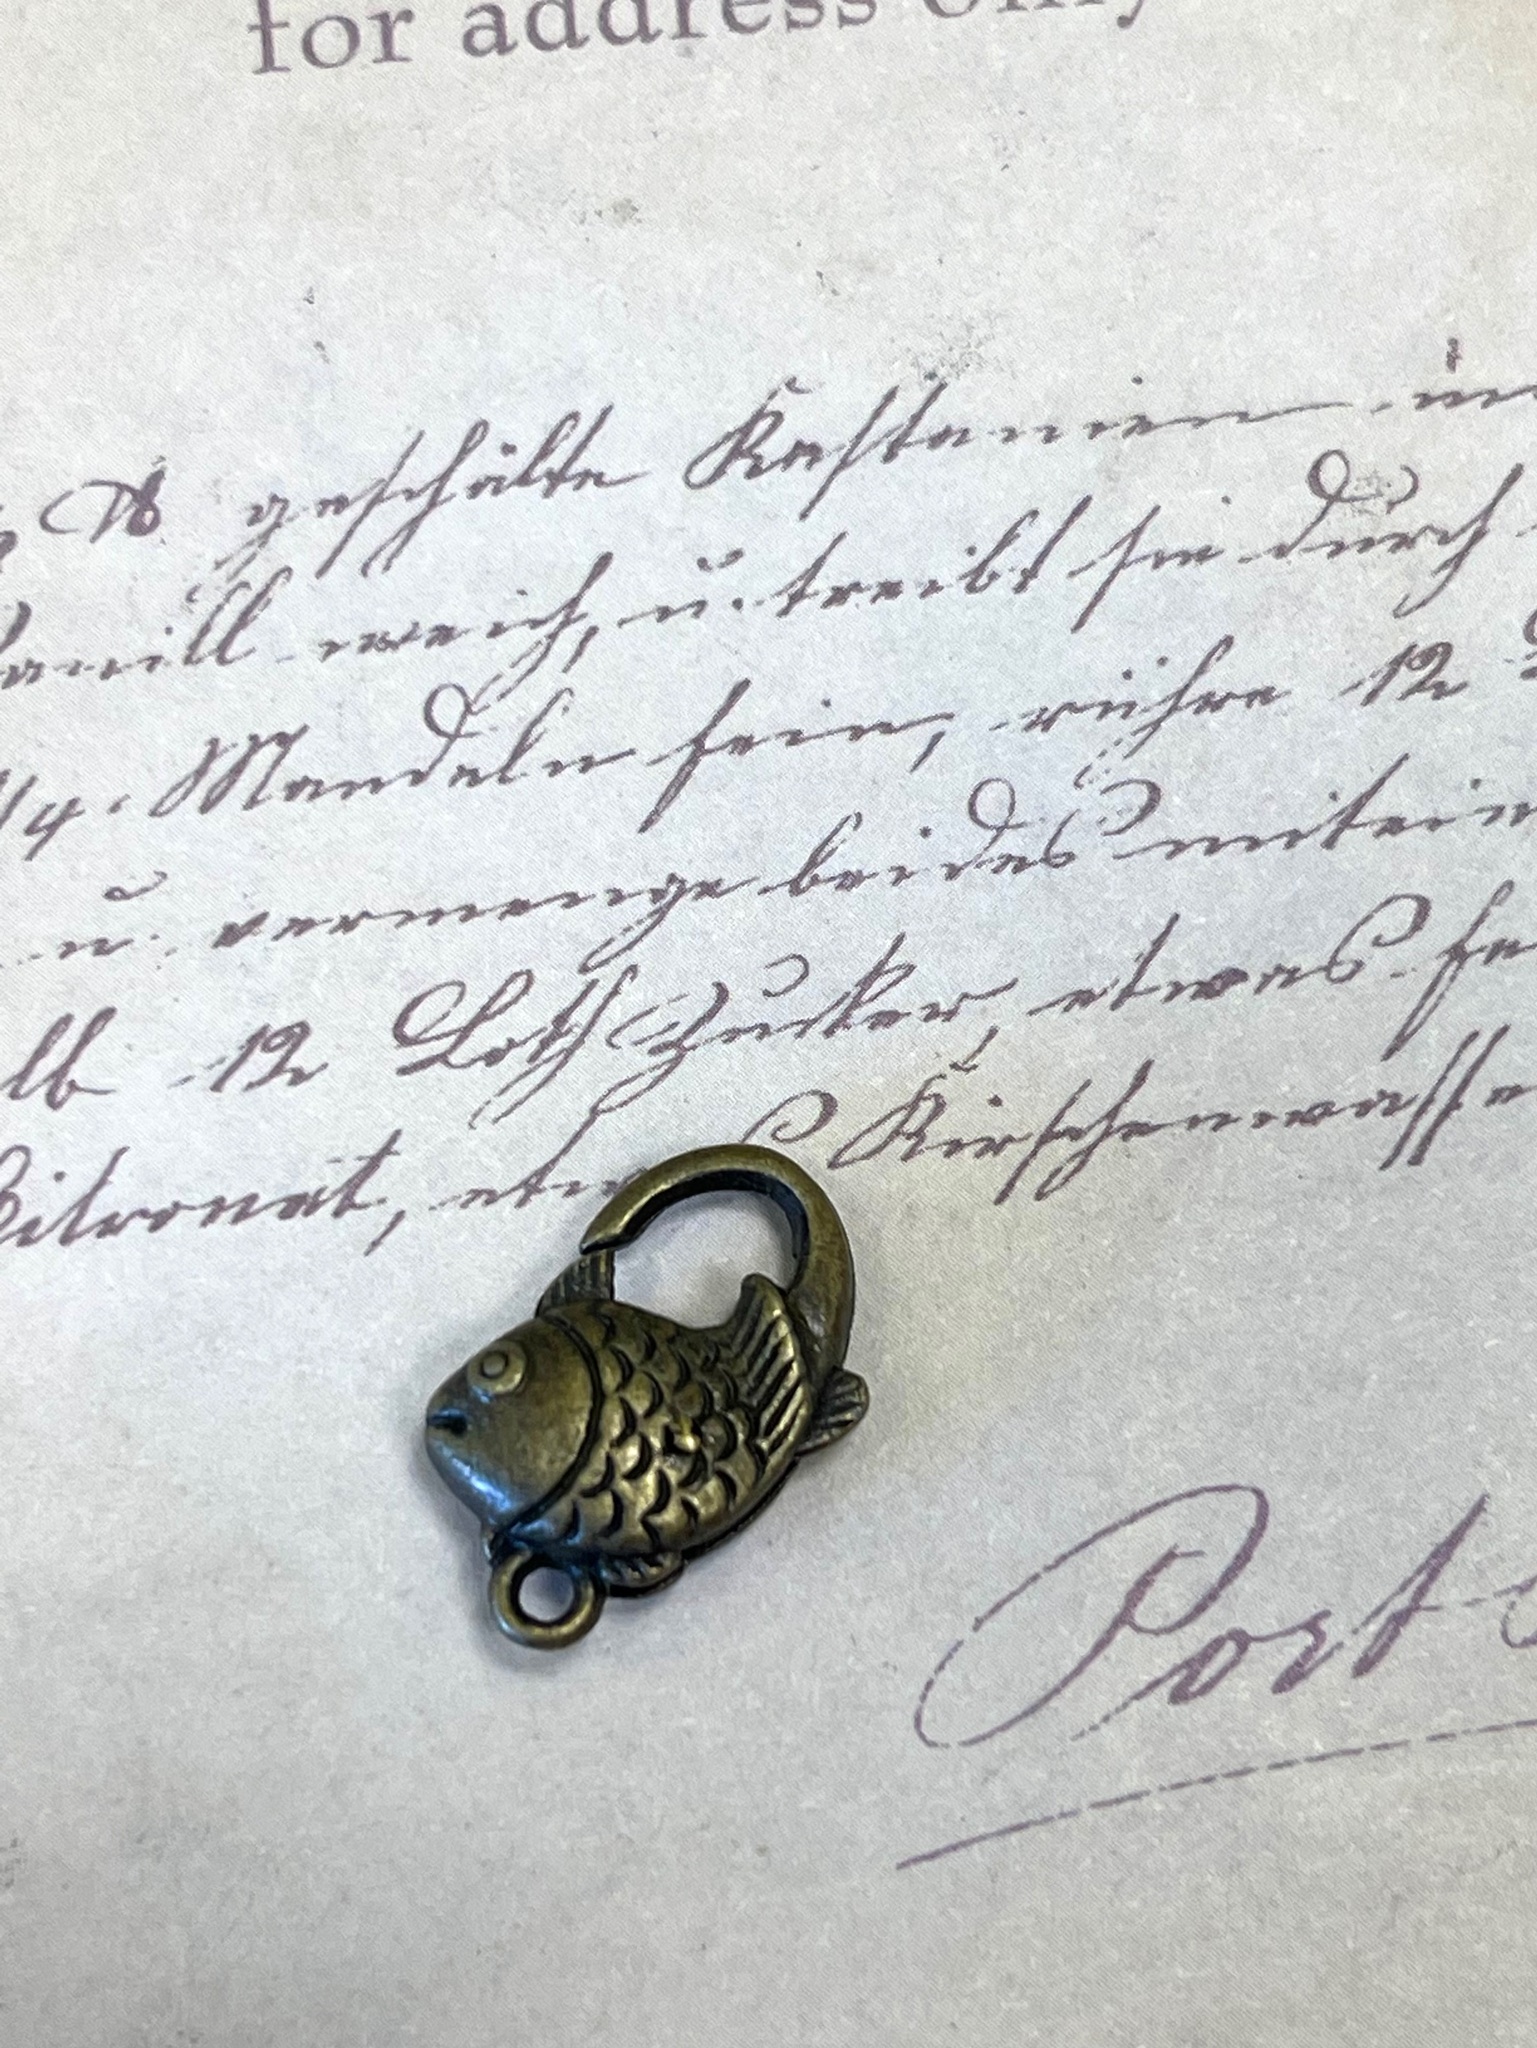 for address only
geschälte Kastanien in
Vanill weich, u. treibt sie durch
1/4. Mandeln fein, rühre 12
u. vermenge beides mitein
lb 12 Loth Zucker, etwas fe
Citronat, etwas Kirschenwasse
Post